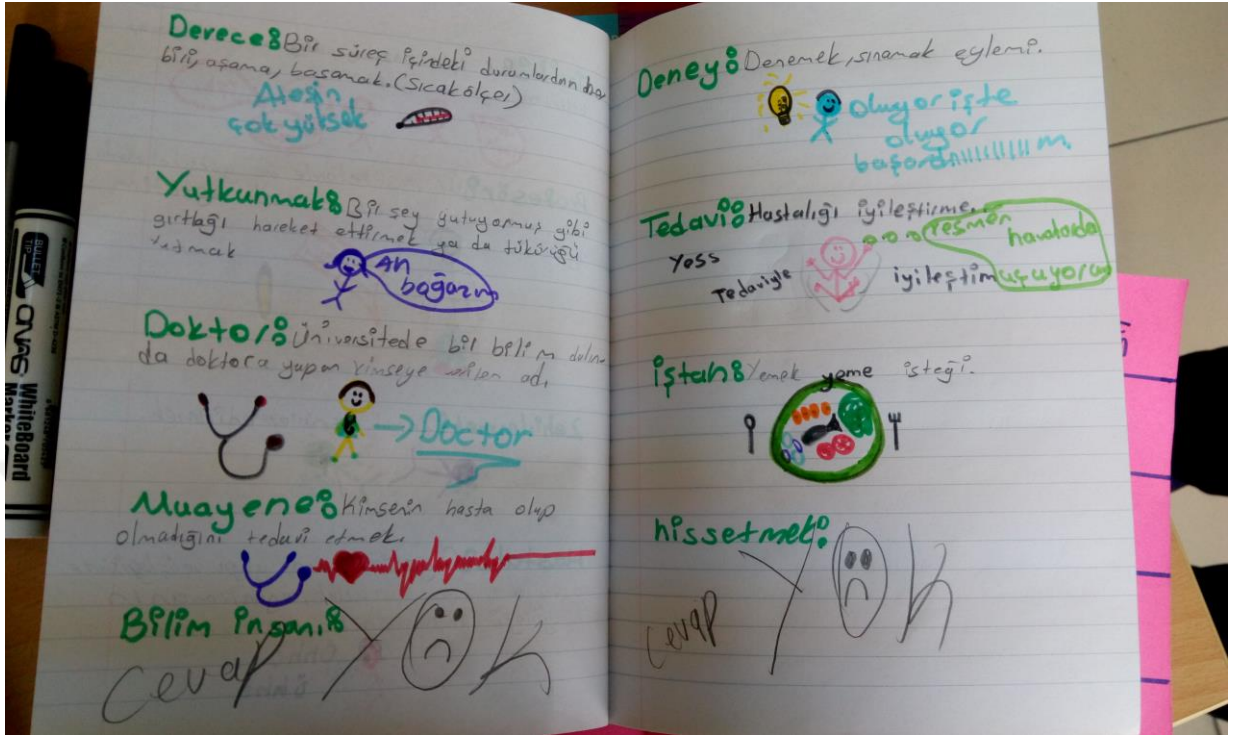 Derece: Bir süreç içindeki durumlardan her
biri, aşama, basamak. (Sıcakölçer)
Ateşin
çok yüksek
Yutkunmak: Bir şey yutuyormuş gibi
gırtlağı hareket ettirmek ya da tükürüğü
yutmak
Ah
boğazım
Doktor: Üniversitede bir bilim dalın-
da doktora yapan kimseye verilen ad.
Doctor
Muayene: Kimsenin hasta olup
olmadığını tedavi etmek.
Bilim insanı:
Cevap YOK
Deney: Denemek, sınamak eylemi.
oluyor işte
oluyor
Tedavi: Hastalığı iyileştirme.
Yess
Tedaviyle
iyileştim
resmen
havalarda
uçuyorum
iştah: Yemek yeme isteği.
hissetmek:
Cevap YOK
BULLET
TIP
WhiteBoard
Marker